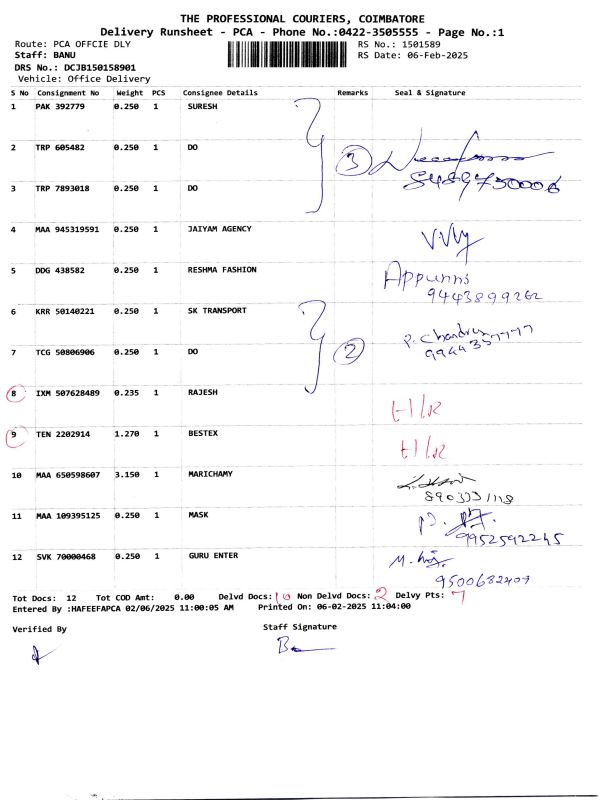 THE PROFESSIONAL COURIERS, COIMBATORE
Delivery Runsheet - PCA - Phone No.:0422-3505555 - Page No.:1
Route: PCA OFFCIE DLY RS No.: 1501589
Staff: BANU RS Date: 06-Feb-2025
DRS No.: DCJB150158901
Vehicle: Office Delivery
S No Consignment No Weight PCS Consignee Details Remarks Seal & Signature
1 PAK 392779 0.250 1 SURESH
2 TRP 605482 0.250 1 DO 3
3 TRP 7893018 0.250 1 DO 8489730006
4 MAA 945319591 0.250 1 JAIYAM AGENCY
5 DDG 438582 0.250 1 RESHMA FASHION Appunns
9443899262
6 KRR 50140221 0.250 1 SK TRANSPORT P. Chandru
7 TCG 50806906 0.250 1 DO 2
8 IXM 507628489 0.235 1 RAJESH
9 TEN 2202914 1.270 1 BESTEX
10 MAA 650598607 3.150 1 MARICHAMY
11 MAA 109395125 0.250 1 MASK
9952592245
12 SVK 70000468 0.250 1 GURU ENTER
9500682407
Tot Docs: 12 Tot COD Amt: 0.00 Delvd Docs: 10 Non Delvd Docs: 2 Delvy Pts: 7
Entered By :HAFEEFAPCA 02/06/2025 11:00:05 AM Printed On: 06-02-2025 11:04:00
Verified By Staff Signature